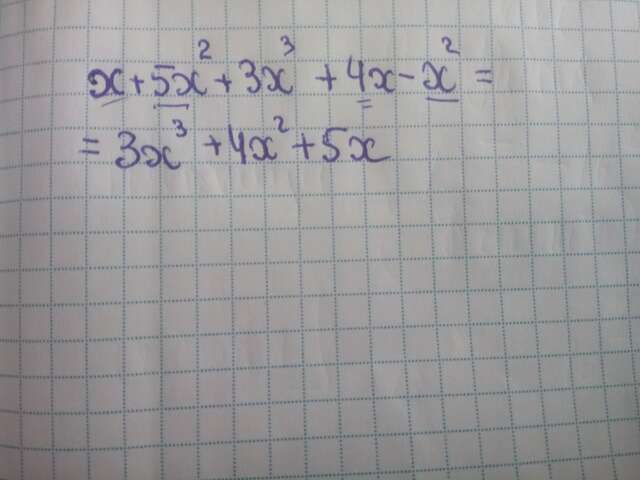 x + 5x² + 3x³ + 4x - x² =
= 3x³ + 4x² + 5x